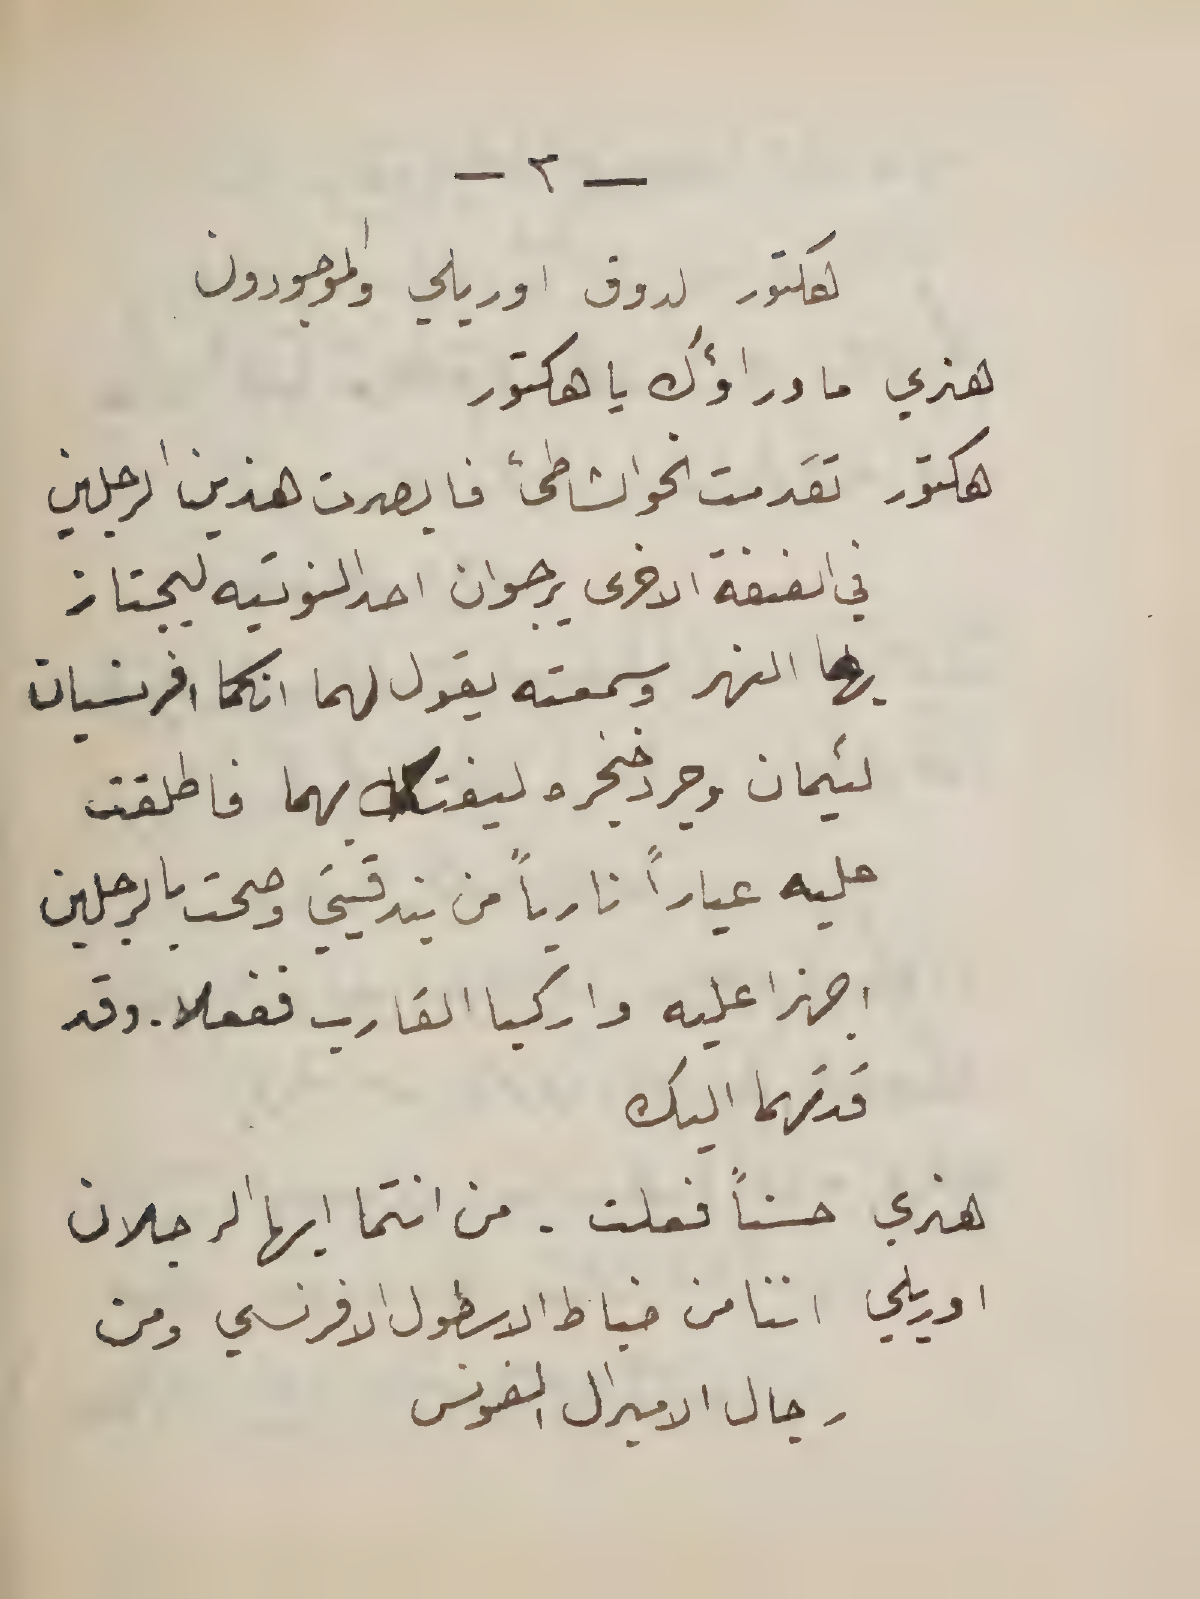 — ٣ —
هكتور لدوق اوريلي والموجودون
هنري ما وراؤك يا هكتور
هكتور تقدمت نحو الشاطئ فابصرت هذين الرجلين
في الضفة الاخرى يرجوان احد النوتيه ليجتاز
بهما النهر وسمعته يقول لهما انكما افرنسيان
لئيمان وجرد خنجره ليفتك بهما فاطلقت
عليه عياراً نارياً من بندقيتي وصحت بالرجلين
اجهزا عليه واركبا القارب ففعلا . وقد
قدتهما اليك
هنري حسناً فعلت . من انتما ايها الرجلان
اوريلي اننا من ضباط الاسطول الافرنسي ومن
رجال الاميرال الفونس